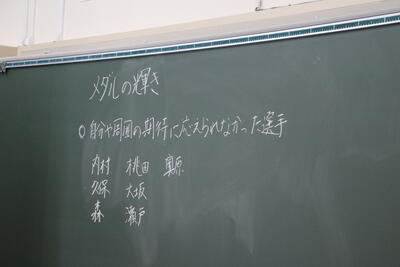 メダルの輝き
○自分や周囲の期待に応えられなかった選手
内村 桃田 奥原
久保 大坂
森 瀬戸